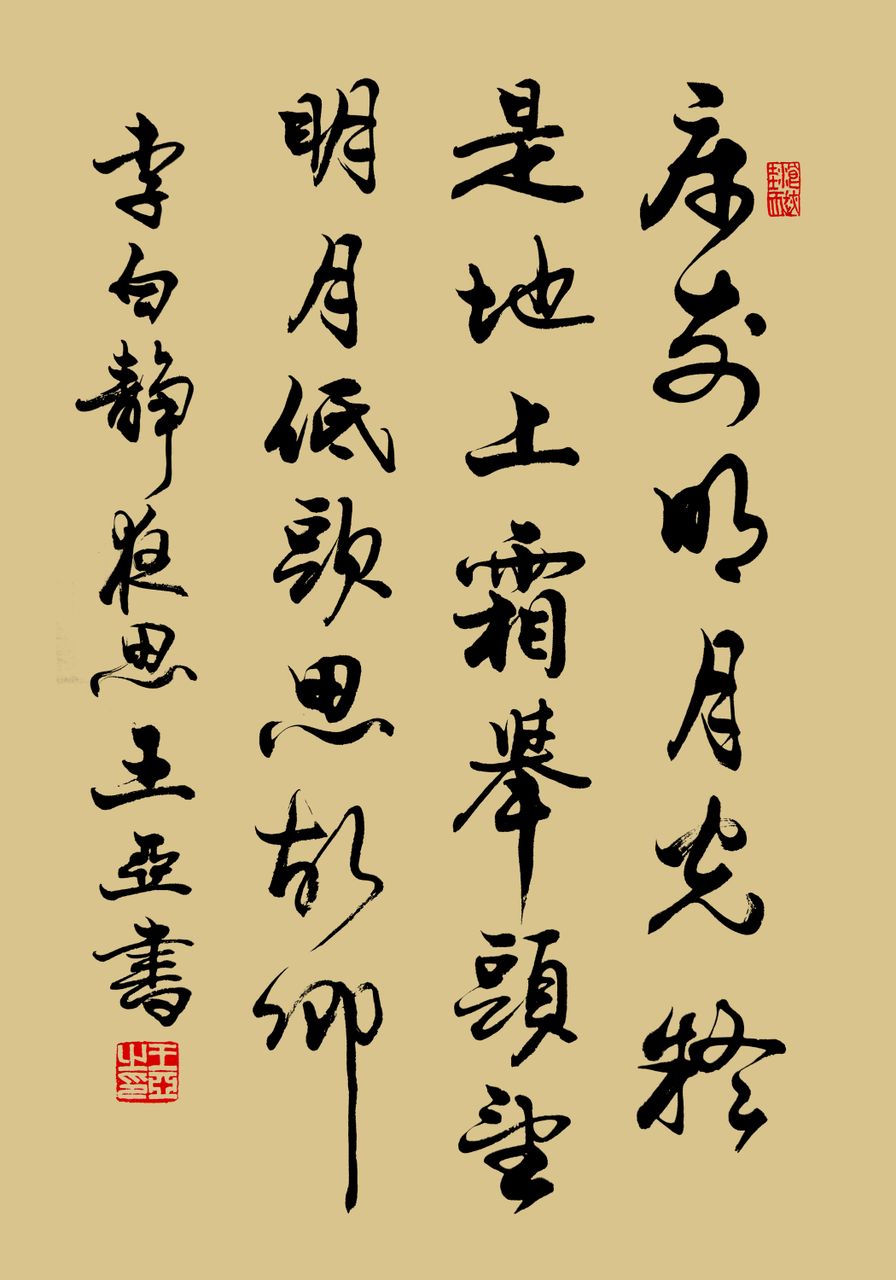 床前明月光疑
是地上霜舉頭望
明月低頭思故鄉
李白靜夜思王亞書
王亞之印